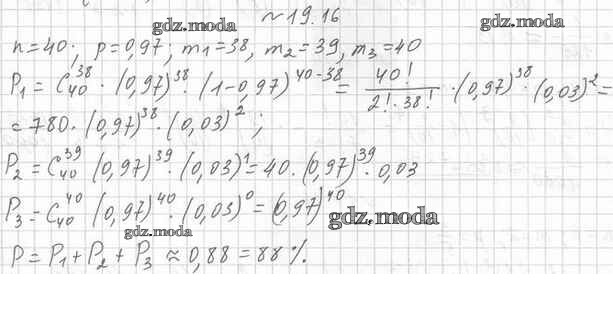 №19.16
gdz.moda gdz.moda
n=40; p=0,97; m₁=38, m₂=39, m₃=40
P₁ = C₄₀³⁸ · (0,97)³⁸ · (1-0,97)⁴⁰⁻³⁸ = 40!/(2!·38!) · (0,97)³⁸ · (0,03)² =
= 780 · (0,97)³⁸ · (0,03)² ;
P₂ = C₄₀³⁹ (0,97)³⁹ · (0,03)¹ = 40 · (0,97)³⁹ · 0,03
P₃ = C₄₀⁴⁰ (0,97)⁴⁰ · (0,03)⁰ = (0,97)⁴⁰
gdz.moda
gdz.moda
P = P₁ + P₂ + P₃ ≈ 0,88 = 88 %.